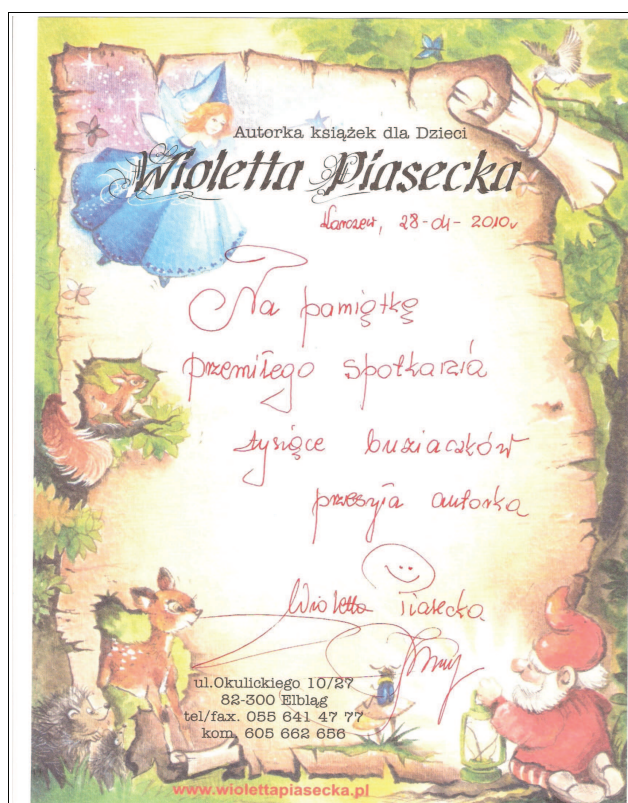 Autorka książek dla Dzieci
Wioletta Piasecka
Karczew, 28-04-2010r
Na pamiątkę
przemiłego spotkania
tysiące buziaczków
przesyła autorka
Wioletta Piasecka
ul.Okulickiego 10/27
82-300 Elbląg
tel/fax. 055 641 47 77
kom. 605 662 656
www.wiolettapiasecka.pl